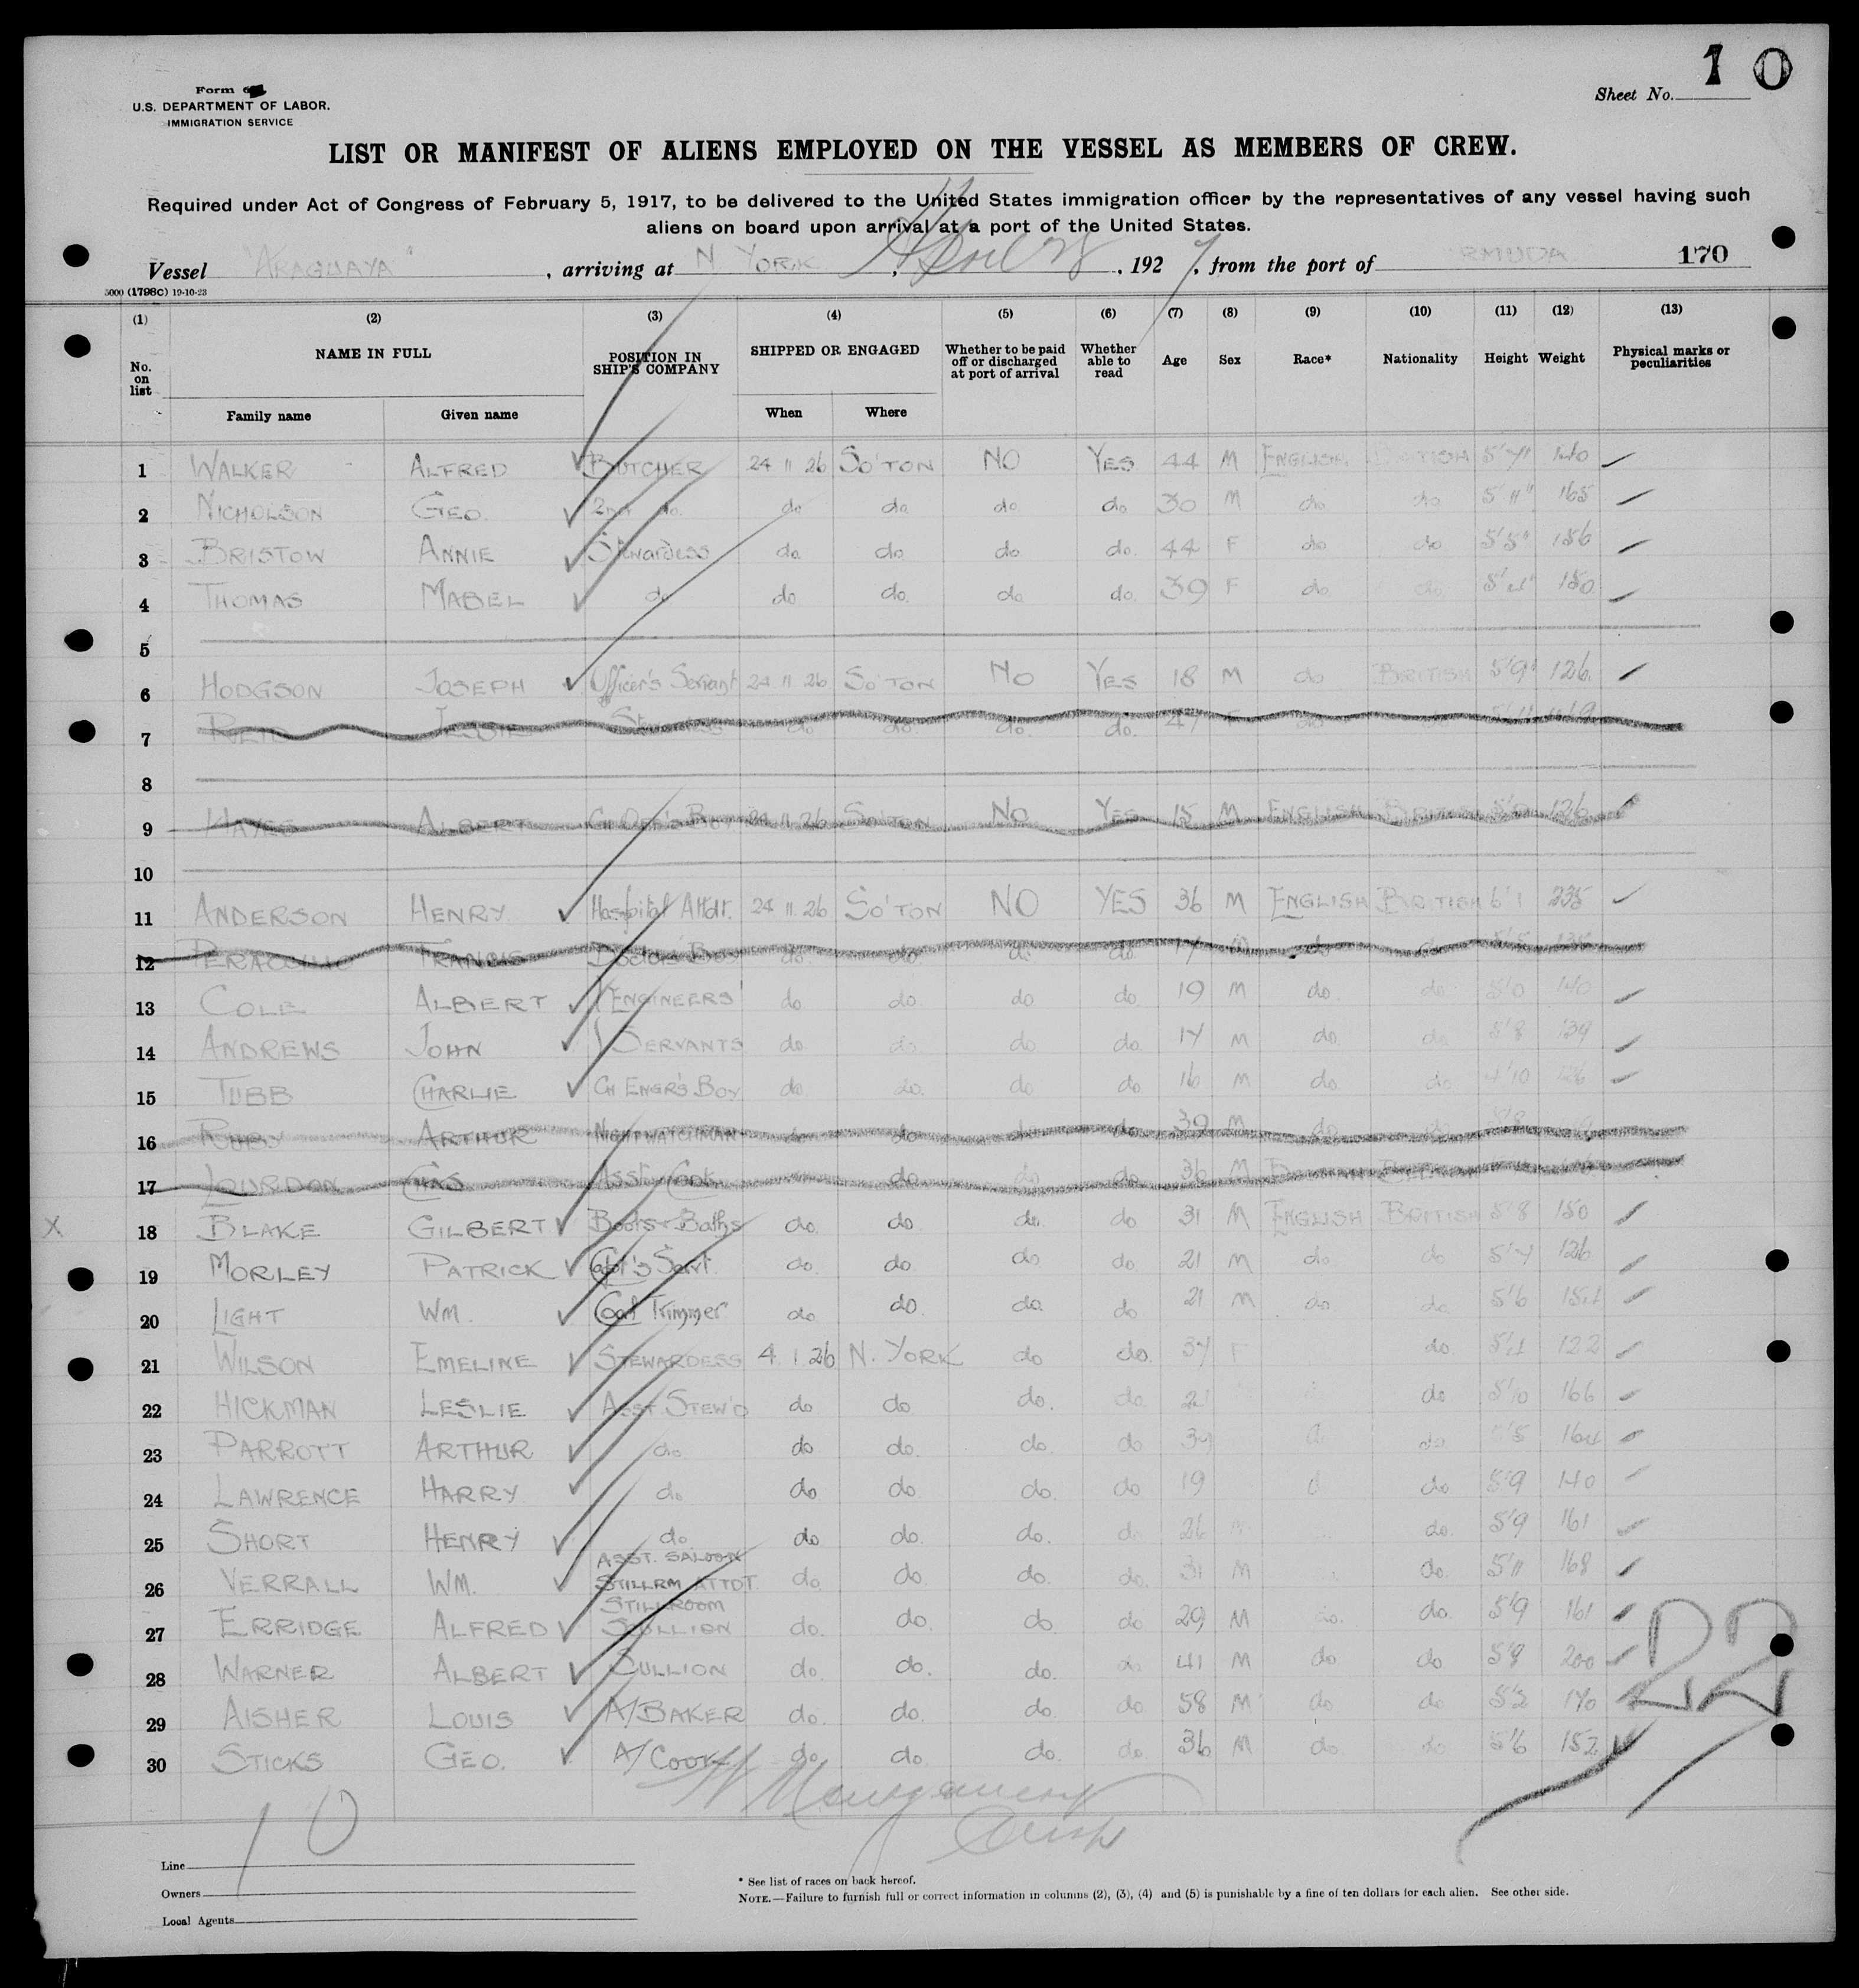 1 0
Form
U.S. DEPARTMENT OF LABOR.
IMMIGRATION SERVICE
Sheet No.
LIST OR MANIFEST OF ALIENS EMPLOYED ON THE VESSEL AS MEMBERS OF CREW.
Required under Act of Congress of February 5, 1917, to be delivered to the United States immigration officer by the representatives of any vessel having such
aliens on board upon arrival at a port of the United States.
Vessel "ARAGUAYA", arriving at N YORK, April 28, 1927, from the port of RMUDA 170
5000 (1798C) 19-10-23
(1) (2) (3) (4) (5) (6) (7) (8) (9) (10) (11) (12) (13)
No. on list NAME IN FULL POSITION IN SHIP'S COMPANY SHIPPED OR ENGAGED Whether to be paid off or discharged at port of arrival Whether able to read Age Sex Race* Nationality Height Weight Physical marks or peculiarities
Family name Given name When Where
1 WALKER ALFRED BUTCHER 24 11 26 SO'TON NO YES 44 M ENGLISH 5'7" 140
2 NICHOLSON GEO. 2ND do. do do do do 30 M do do 5'11" 165
3 BRISTOW ANNIE Stewardess do. do. do. do. 44 F do do 5'5" 156
4 THOMAS MABEL do do do. do do. 39 F do do 150
5
6 HODGSON JOSEPH Officer's Servant 24 11 26 SO'TON NO YES 18 M do BRITISH 5'9" 126
7 JESSIE do do. do. do. 47
8
9 HAYES ALBERT 24 11 26 SO'TON NO YES 15 M ENGLISH BRITISH 126
10
11 ANDERSON HENRY Hospital Attdt. 24 11 26 SO'TON NO YES 36 M ENGLISH BRITISH 6'1 235
12 FRANCIS do. do. do do 17 do do
13 COLE ALBERT ENGINEERS' do do. do do 19 M do. do 5'0 140
14 ANDREWS JOHN SERVANTS do. do do do. 17 M do. do 5'8 139
15 TUBB CHARLIE CH ENGR'S BOY do do. do do 16 M do. do 4'10
16 ARTHUR NIGHTWATCHMAN do do do do 39 M do do 5'8
17 LOURDON CHAS ASST COOK do. do do 36 M
18 BLAKE GILBERT Boots & Baths do. do. do. do 31 M ENGLISH BRITISH 5'8 150
X
19 MORLEY PATRICK Capt's Servt. do. do. do. do 21 M do do 5'7 126
20 LIGHT WM. Coal Trimmer do do. do. do 21 M do do 5'6 154
21 WILSON EMELINE STEWARDESS 4 1 26 N. YORK do do. 37 F do. 122
22 HICKMAN LESLIE ASST STEW'D do do do. do. do 5'10 166
23 PARROTT ARTHUR do do do. do. do do 164
24 LAWRENCE HARRY do do do. do. do 19 do 5'9 140
25 SHORT HENRY do do do. do. do 26 do. 5'9 161
26 VERRALL WM. ASST. SALOON STILLRM ATTDT do do. do. do. 31 M do. 5'11 168
27 ERRIDGE ALFRED STILLROOM SCULLION do. do. do. do 29 M do. do. 5'9 161
28 WARNER ALBERT SCULLION do. do. do. do 41 M do do 5'9 200
29 AISHER LOUIS A/BAKER do. do. do. do 58 M do do 5'2 170
30 STICKS GEO. A/COOK do do. do. do. 36 M do do 5'6 152
22
10
W Montgomery
Line
Owners
Local Agents
* See list of races on back hereof.
NOTE.—Failure to furnish full or correct information in columns (2), (3), (4) and (5) is punishable by a fine of ten dollars for each alien. See other side.